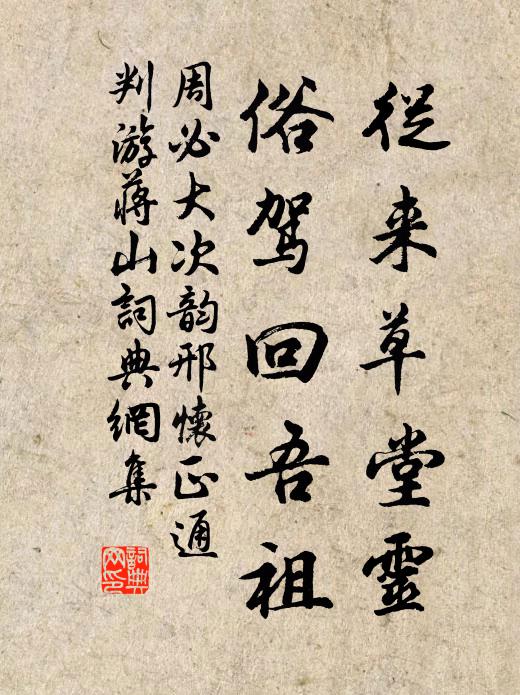 從来草堂靈
俗駕回吾祖
周必大次韵邢懷正通
判游蔣山詞典網集
詞典网印